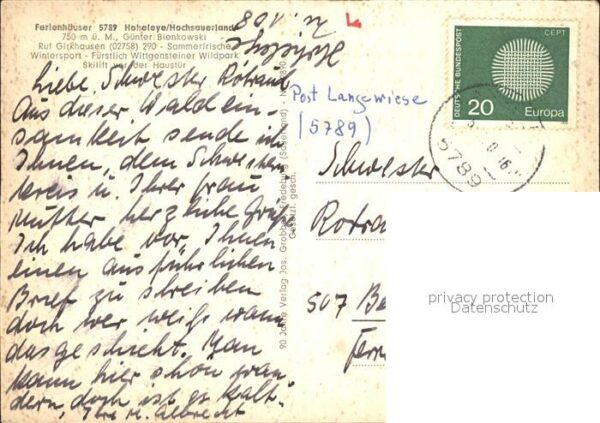 Ferienhäuser 5789 Hoheleye/Hochsauerland
750 m ü. M., Günter Bienkowski
Ruf Girkhausen (02758) 290 - Sommerfrische
Wintersport - Fürstlich Wittgensteiner Wildpark
Skilift vor der Haustür
Liebe Schwester Rotraud
Aus dieser Waldein-
samkeit sende ich
Ihnen, dem Schwestern
kreis u Ihrer Frau
Mutter herzliche Grüße
Ich habe vor, Ihnen
einen ausführlichen
Brief zu schreiben
doch wer weiß wann
das geschieht. Man
kann hier schön wan
dern, doch ist es kalt.
Ihre M. Albrecht
90 Jahre Verlag Jos. Grobbel, Fredeburg (Sauerland)
Gesetzl. gesch.
Post Langewiese
(5789)
DEUTSCHE BUNDESPOST
CEPT
20
Europa
5789
Schwester
Rotra
507 Be
privacy protection
Datenschutz